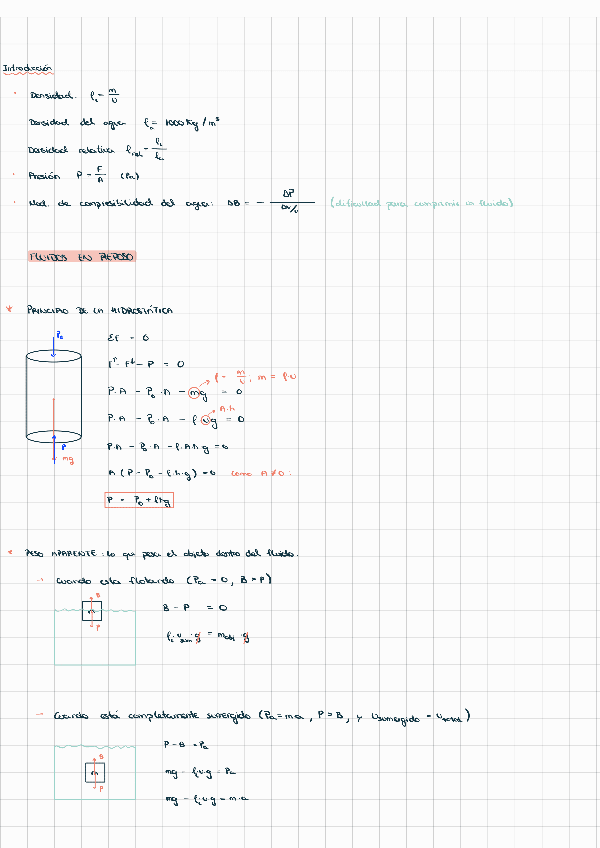 Introducción
· Densidad. ρ = m/v
Densidad del agua ρₐ = 1000 Kg/m³
Densidad relativa ρrel = ρ/ρₐ
· Presión P = F/A (Pa)
· Mod. de compresibilidad del agua: ΔB = - ΔP / Δv/v (dificultad para comprimir un fluido)
FLUIDOS EN REPOSO
* PRINCIPIO DE LA HIDROSTÁTICA
P₀
ΣF = 0
F↑ - F↓ - P = 0
ρ = m/v, m = ρ·v
P·A - P₀·A - mg = 0
A·h
P·A - P₀·A - ρ·v·g = 0
P
mg
P·A - P₀·A - ρ·A·h g = 0
A (P - P₀ - ρ·h·g) = 0 como A≠0:
P = P₀ + ρhg
* PESO APARENTE: lo que pesa el objeto dentro del fluido.
→ Cuando esta flotando (Pa = 0, B = P)
B
m
P
B - P = 0
ρ·v sum·g = m obj·g
→ Cuando está completamente sumergido (Pa = ma, P > B, y Vsumergido = Vtotal)
B
m
P
P - B = Pa
mg - ρ·v·g = Pa
mg - ρ·v·g = m·a